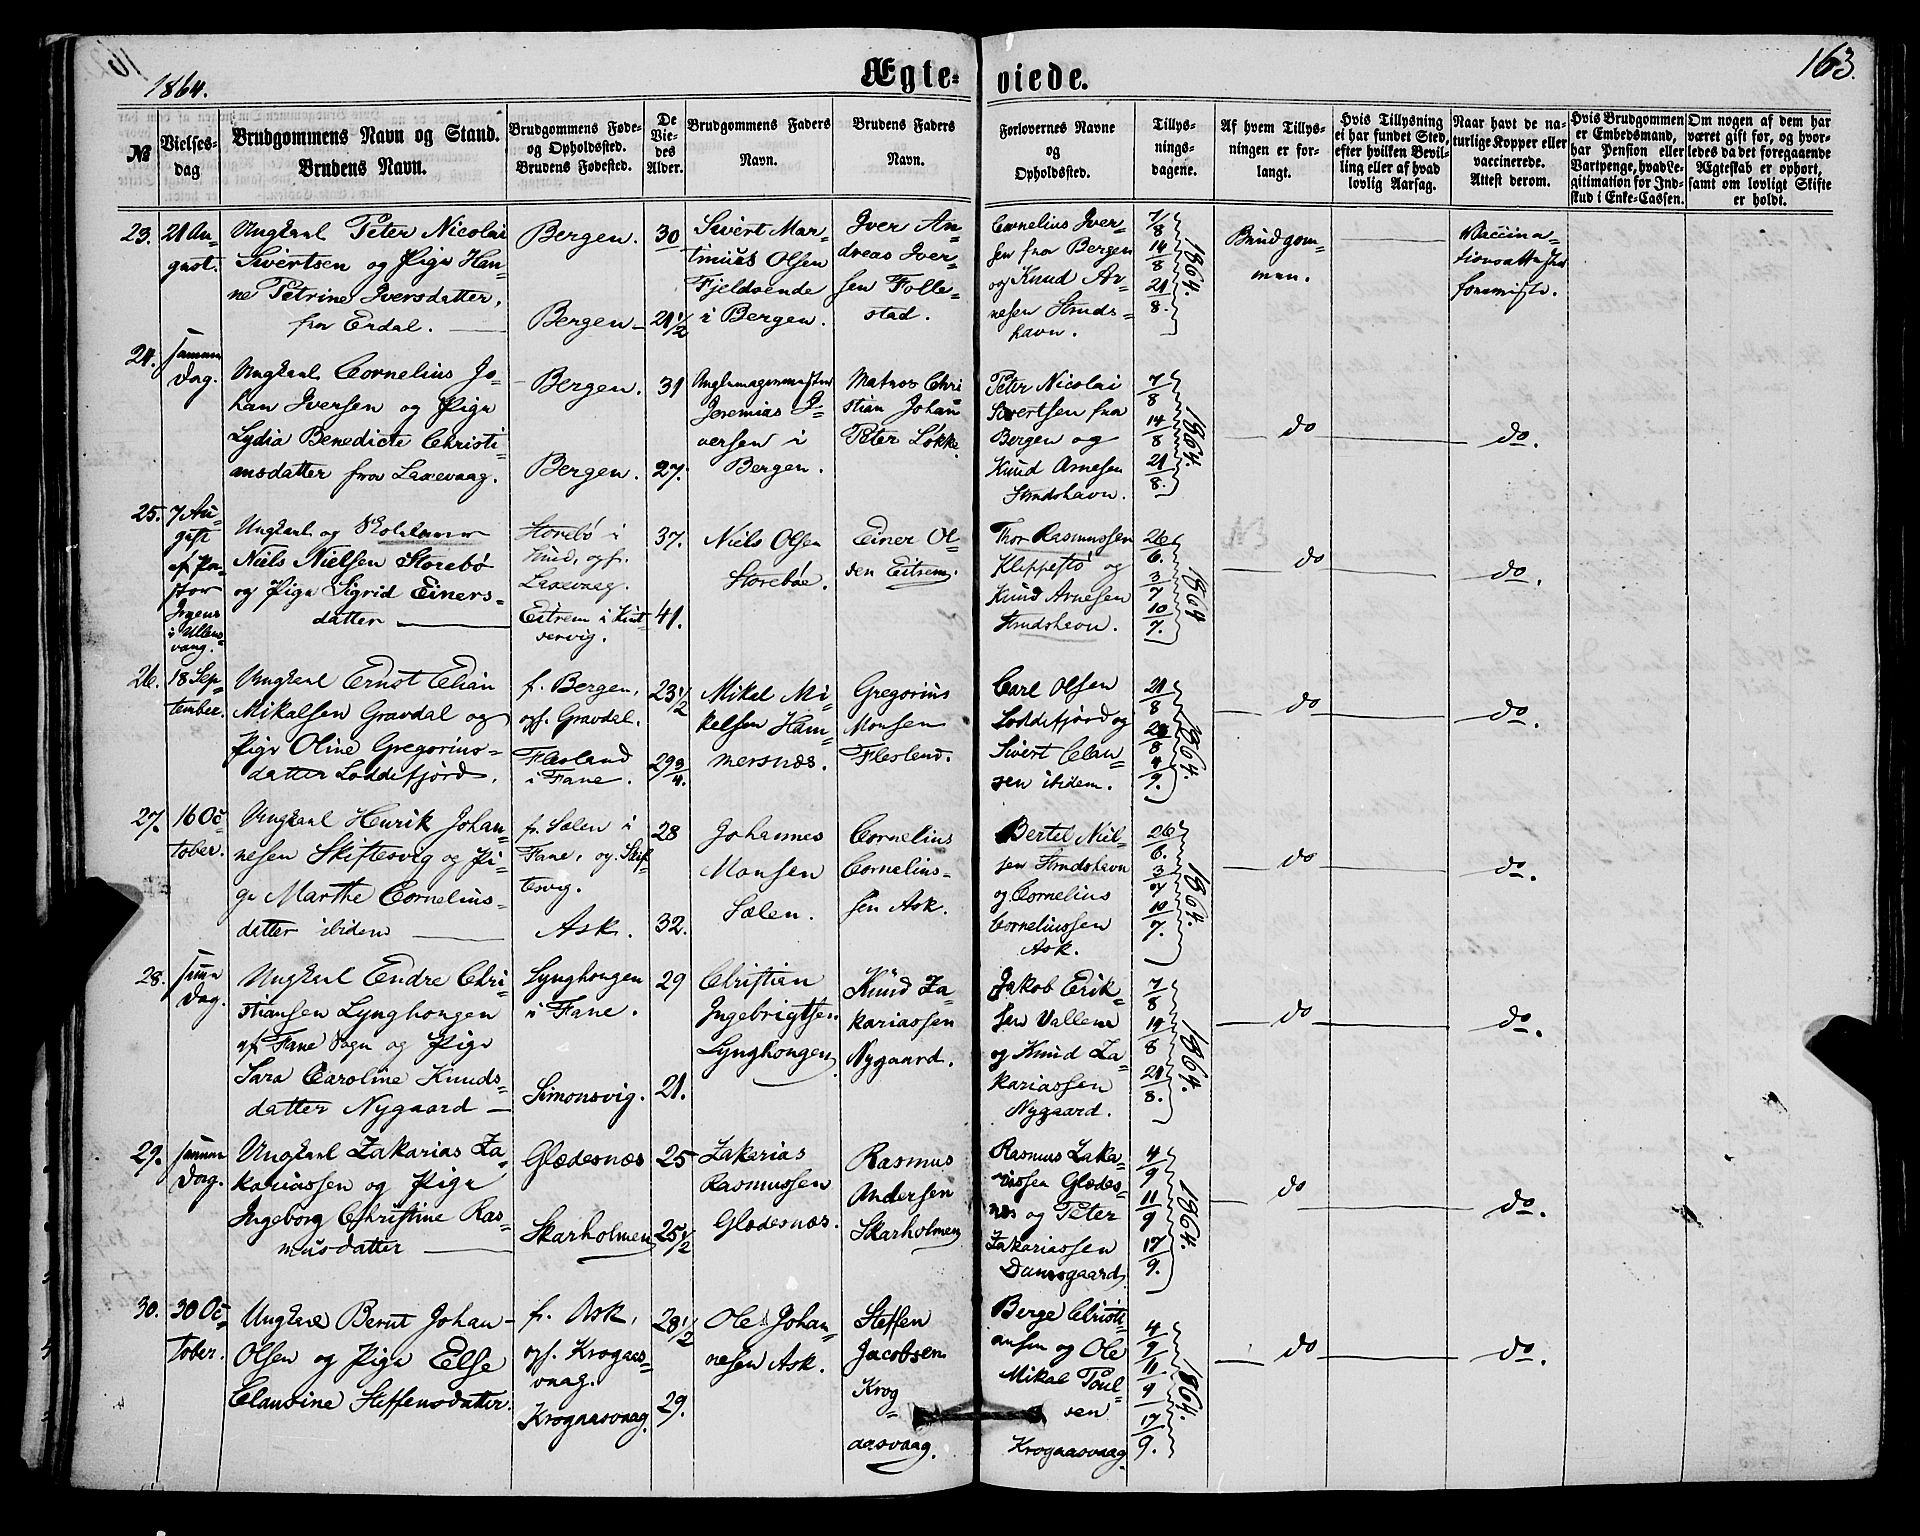 163.
1864.
Ægteviede.
№
Vielsesdag
Brudgommens Navn og Stand.
Brudens Navn.
Brudgommens Fødeog Opholdssted.
Brudens Fødested.
De Viedes Alder.
Brudgommens Faders
Navn.
Brudens Faders
Navn.
Forlovernes Navne
og
Opholdssted.
Tillysningsdagene.
Af hvem Tillysningen er forlangt.
Hvis Tillysning
ei har fundet Sted,
efter hvilken Bevilling eller af hvad
lovlig Aarsag.
Naar havt de naturlige Kopper eller
vaccinerede.
Attest derom.
Hvis Brudgommen
er Embedsmand,
har Pension eller
Vartpenge, hvad Legitimation for Indskud i Enke-Cassen.
Om nogen af dem har
været gift før, og hvorledes da det foregaaende
Ægteskab er ophørt,
samt om lovligt Skifte
er holdt.
23.
21 August.
Ungkarl Peter Nicolai
Sivertsen og Pige Hanne Petrine Iversdatter,
fra Erdal.
Bergen.
Bergen
30
21 1/2
Sivert Martinius Olsen
Fjeldvende
i Bergen.
Iver Andreas Iversen Follestad.
Cornelius Iversen fra Bergen
og Knud Arnesen Strudshavn.
7/8
14/8
21/8.
1864.
Brudgommen.
Vaccinationsattester
foreviste.
24.
samme
Dag.
Ungkarl Cornelius Johan Iversen og Pige
Lydia Benedicte Christiansdatter fra Laxevaag.
Bergen.
Bergen.
31
27.
Jeremias Iversen i
Bergen.
Matros Christian Johan
Peter Løkke.
Peter Nicolai
Sivertsen fra
Bergen og
Knud Arnesen
Strudshavn.
7/8
14/8
21/8.
1864.
do
do.
25.
7 August
af Pastor
Irgens
i Ullensvang.
Ungkarl og
Niels Nielsen Storebø
og Pige Sigrid Einersdatter
Storebø i
Sund, og fr.
Laxevaag.
Eitrem i Kintservig.
37.
41.
Niels Olsen
Storebøe.
Einer Olsen Eitrem.
Thor Rasmussen
Kleppestø og
Knud Arnesen
Strudshavn.
26/6.
3/7
10/7.
1864
do
do.
26.
18 September.
Ungkarl Ernst Elian
Mikalsen Gravdal og
Pige Oline Gregoriusdatter Loddefjord.
f. Bergen,
opf. Gravdal.
Flesland
i Fane.
23 1/2
29 3/4.
Mikel Mikelsen Hammersnæs.
Gregorius
Monsen
Flesland.
Carl Olsen
Loddefjord og
Sivert Clausen ibidem.
21/8
28/8
4/9.
1864.
do
do.
27.
16 October.
Ungkarl Henrik Johannesen Skiftesvig og Pige Marthe Corneliusdatter ibidem
fr. Sælen i
Fane, og Skiftesvig.
Ask.
28
32.
Johannes
Monsen
Sælen.
Cornelius
Corneliussen Ask.
Bertel Nielsen Strudshavn
og Cornelius
Corneliussen
Ask.
26/6.
3/7
10/7.
1864.
do
do.
28.
samme
Dag.
Ungkarl Endre Christiansen Lynghougen
af Fane Sogn og Pige
Sara Caroline Knudsdatter Nygaard
Lynghougen
i Fane.
Simonsvig.
29
21.
Christian
Ingebrigtsen
Lynghougen
Knud Zakariassen
Nygaard.
Jakob Eriksen Vallem
og Knud Zakariassen
Nygaard.
7/8
14/8
21/8.
1864.
do
do.
29.
samme
Dag.
Ungkarl Zakarias Zakariassen og Pige
Ingeborg Christine Rasmusdatter
Glædesnæs
Skarholmen
25
25 1/2
Zakarias
Rasmussen
Glædesnæs.
Rasmus
Andersen
Skarholmen
Rasmus Zakariassen Glædesnæs og Peter
Zakariassen
Damsgaard.
4/9
11/9
17/9.
1864.
do
do.
30.
30 October.
Ungkarl Bernt JohanOlsen og Pige Else
Claudine Steffensdatter.
fr. Ask,
opf. Krogaasvaag.
Krogaasvaag.
28 1/2
29.
Ole Johannesen Ask.
Steffen
Jacobsen
Krogaasvaag.
Berge Christiansen og Ole
Mikal Poulsen
Krogaasvaag.
4/9
11/9
17/9.
1864.
do
do.